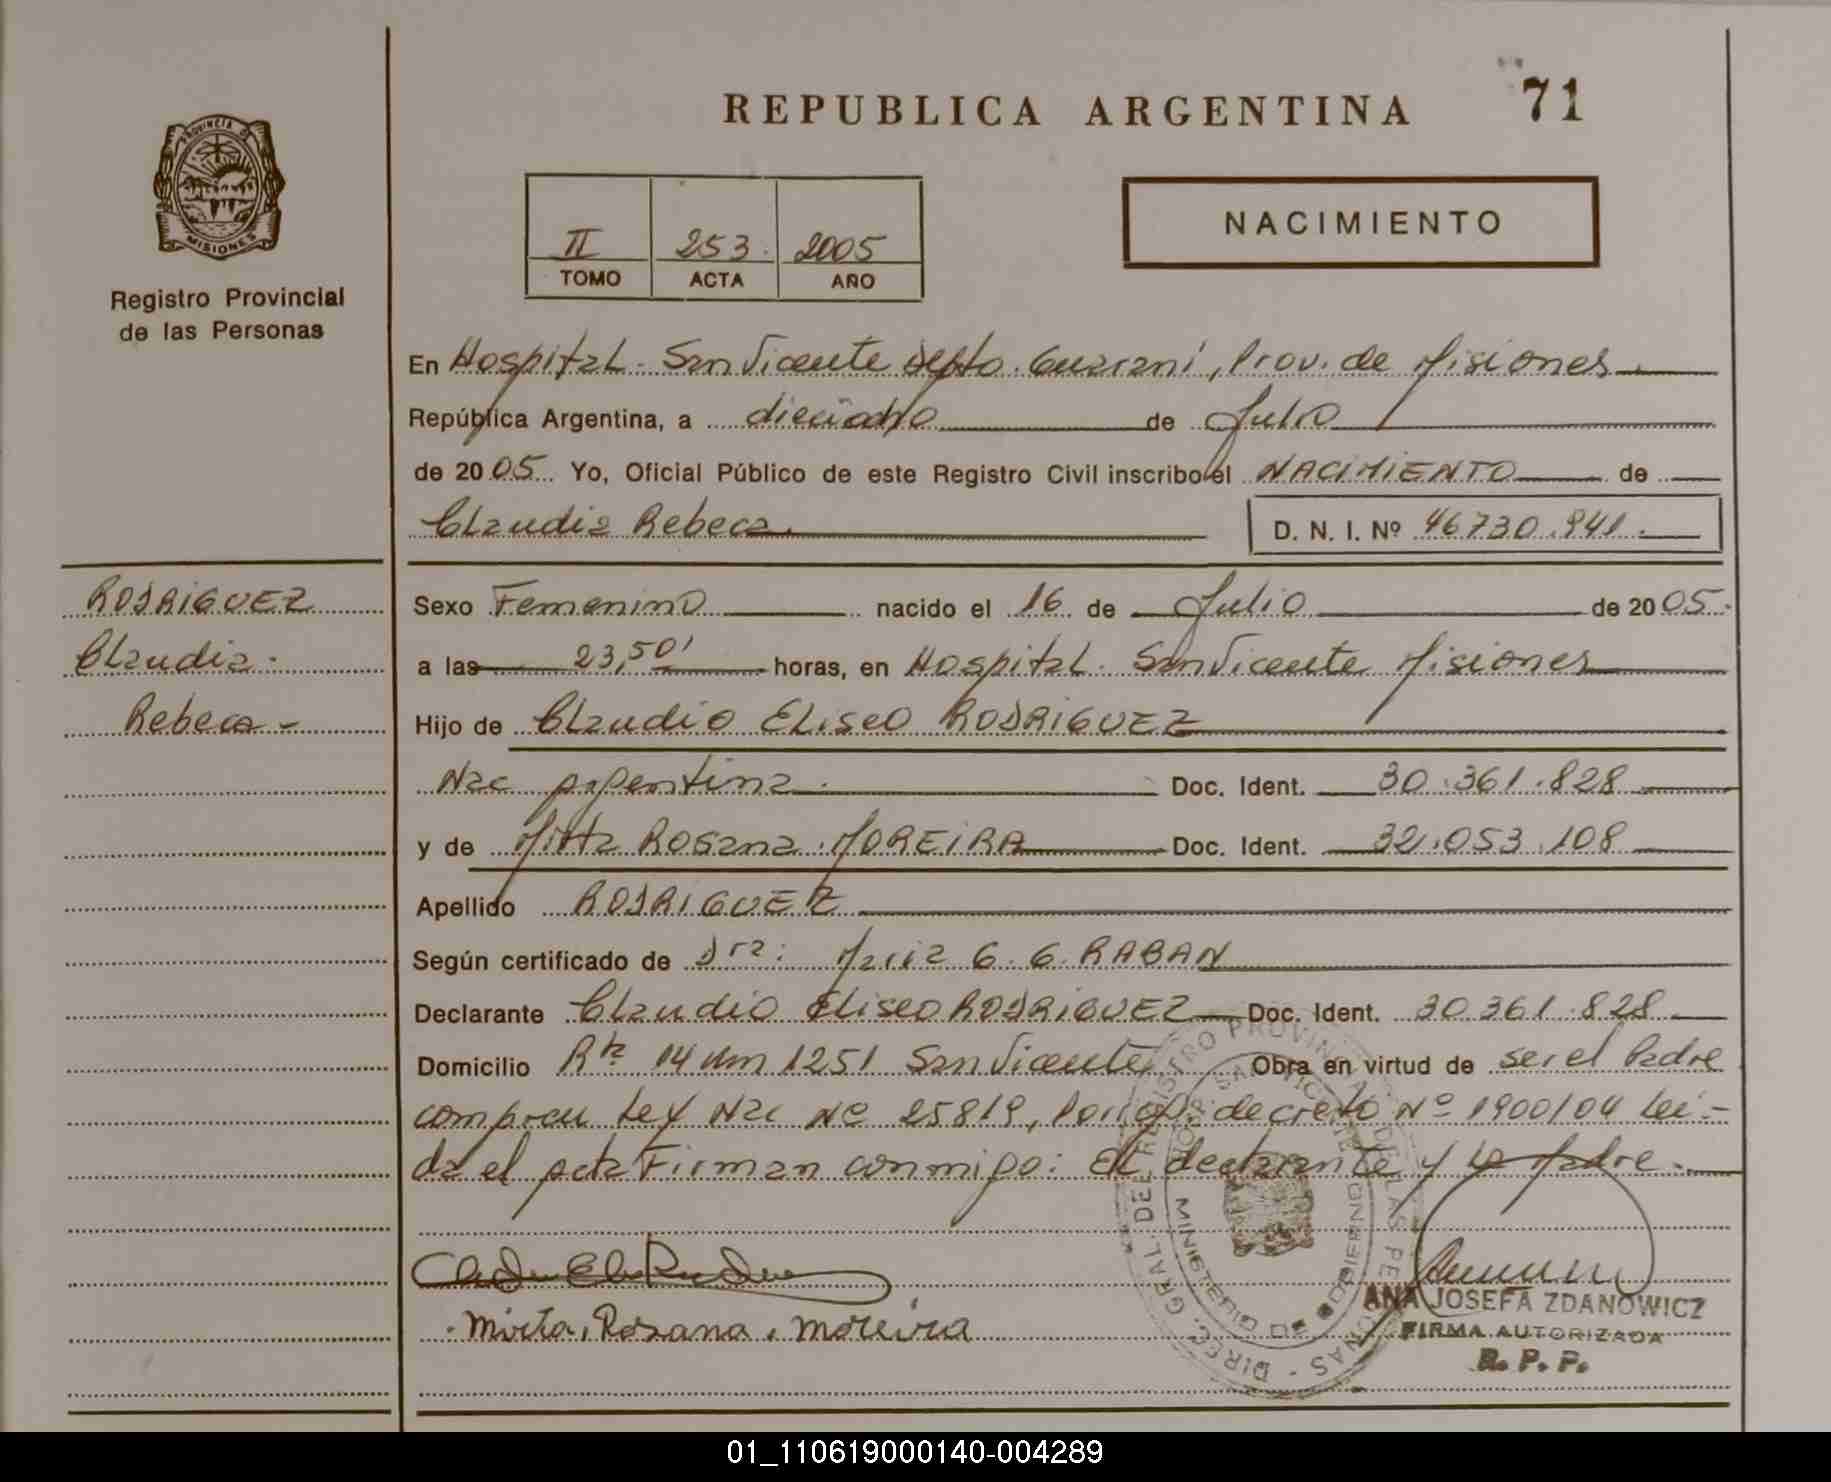 REPUBLICA ARGENTINA
71
PROVINCIA DE
MISIONES
Registro Provincial
de las Personas
II 253. 2005
TOMO ACTA AÑO
NACIMIENTO
En Hospital. San Vicente Depto. Guaraní, Prov. de Misiones.
República Argentina, a dieciocho de Julio
de 2005 Yo, Oficial Público de este Registro Civil inscribo el NACIMIENTO de
Claudia Rebeca.
D. N. I. Nº 46730.941.
RODRIGUEZ
Claudia.
Rebeca-
Sexo Femenino nacido el 16 de Julio de 2005.
a las 23,50' horas, en Hospital. San Vicente Misiones
Hijo de Claudio Eliseo RODRIGUEZ
Nac argentina. Doc. Ident. 30.361.828
y de Mirta Rosana. MOREIRA Doc. Ident. 32.053.108
Apellido RODRIGUEZ
Según certificado de Dra: G. G. RABAN
Declarante Claudio Eliseo RODRIGUEZ Doc. Ident. 30.361.828
Domicilio Rta 14 Km 1251 San Vicente Obra en virtud de ser el Padre
Ley Nac Nº 25819, decreto Nº 1900/04 Leí-
da el acta Firman conmigo: El declarante y la Madre.
Mirta, Rosana, moreira
ANA JOSEFA ZDANOWICZ
FIRMA AUTORIZADA
R. P. P.
DIREC. GRAL. DEL REGISTRO PROVINCIAL DE LAS PERSONAS
MINISTERIO DE GOBIERNO
01_110619000140-004289